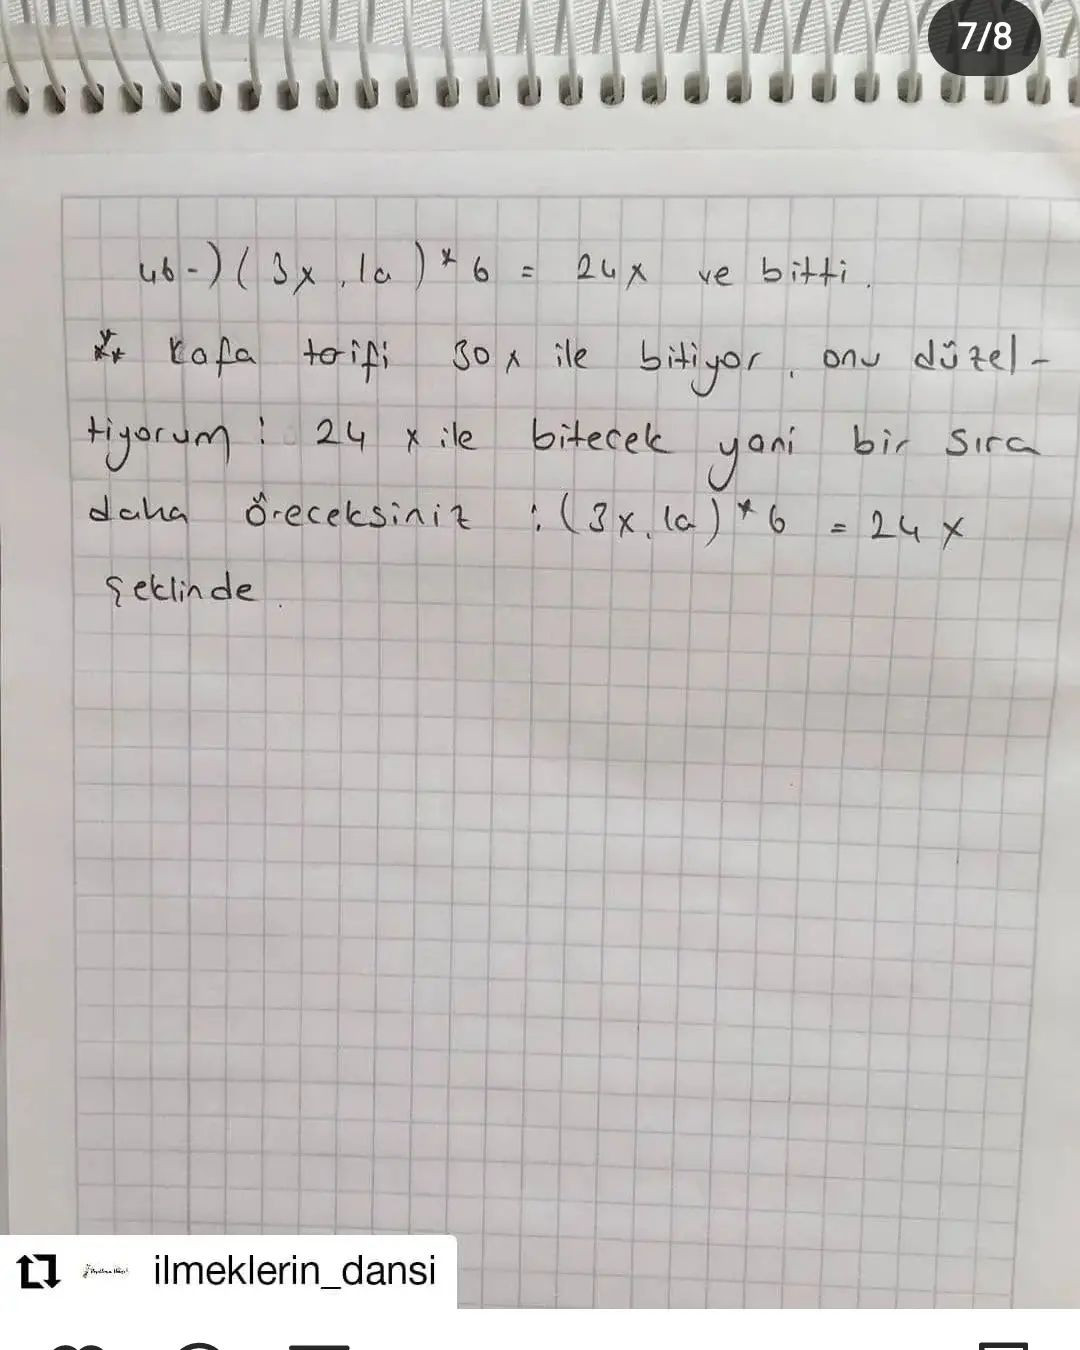 7/8
46-) (3x, 1a)* 6 = 24x ve bitti.
** Kafa tarifi 30x ile bitiyor, onu düzel-
tiyorum: 24 x ile bitecek yani bir sıra
daha öreceksiniz : (3x, 1a)* 6 = 24x
şeklinde.
ilmeklerin_dansi